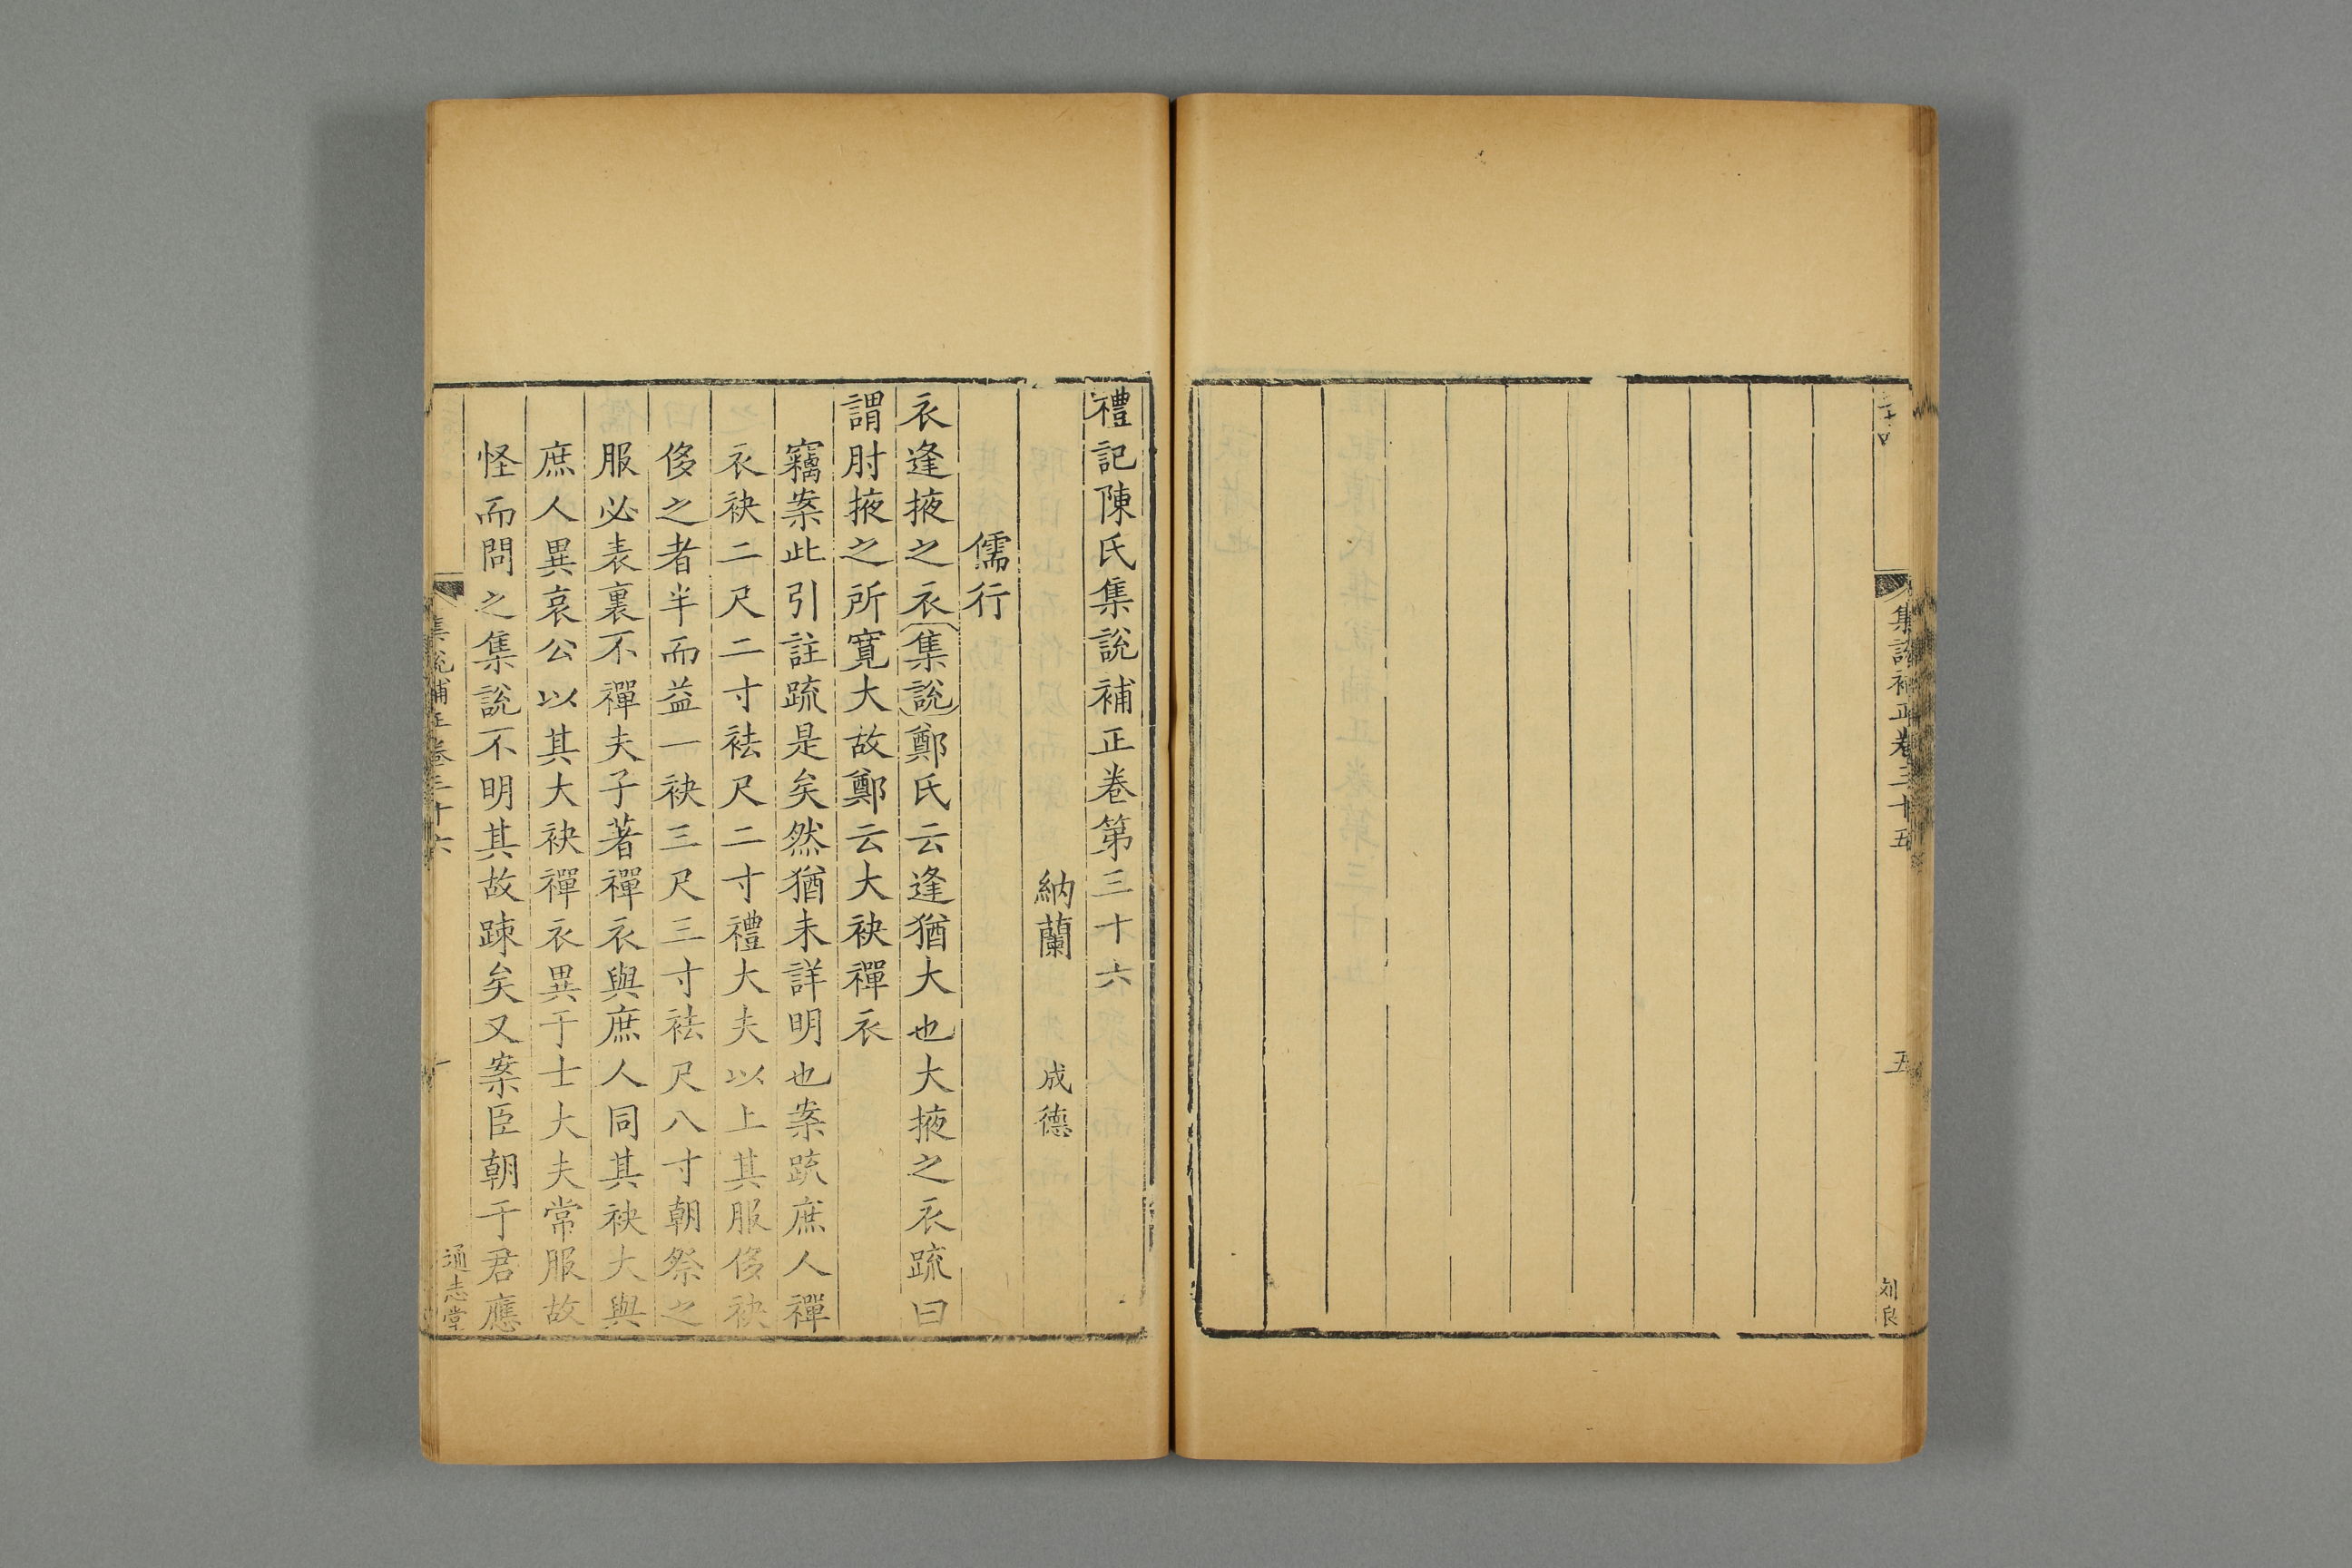 集說補正卷三十五
五
刘良
禮記陳氏集說補正卷第三十六
納蘭 成德
儒行
衣逢掖之衣集說鄭氏云逢猶大也大掖之衣疏曰
謂肘掖之所寬大故鄭云大袂禪衣
竊案此引註疏是矣然猶未詳明也案疏庶人禪
衣袂二尺二寸袪尺二寸禮大夫以上其服侈袂
侈之者半而益一袂三尺三寸袪尺八寸朝祭之
服必表裏不禪夫子著禪衣與庶人同其袂大與
庶人異哀公以其大袂禪衣異于士大夫常服故
怪而問之集說不明其故踈矣又案臣朝于君應
集說補正卷三十六
一
通志堂